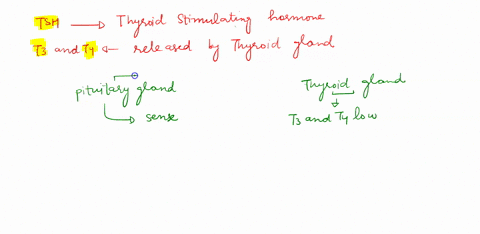 TSH → Thyroid Stimulating hormone
T3 and T4 ← released by Thyroid gland
pituitary gland
→ sense
Thyroid gland
↓
T3 and T4 low